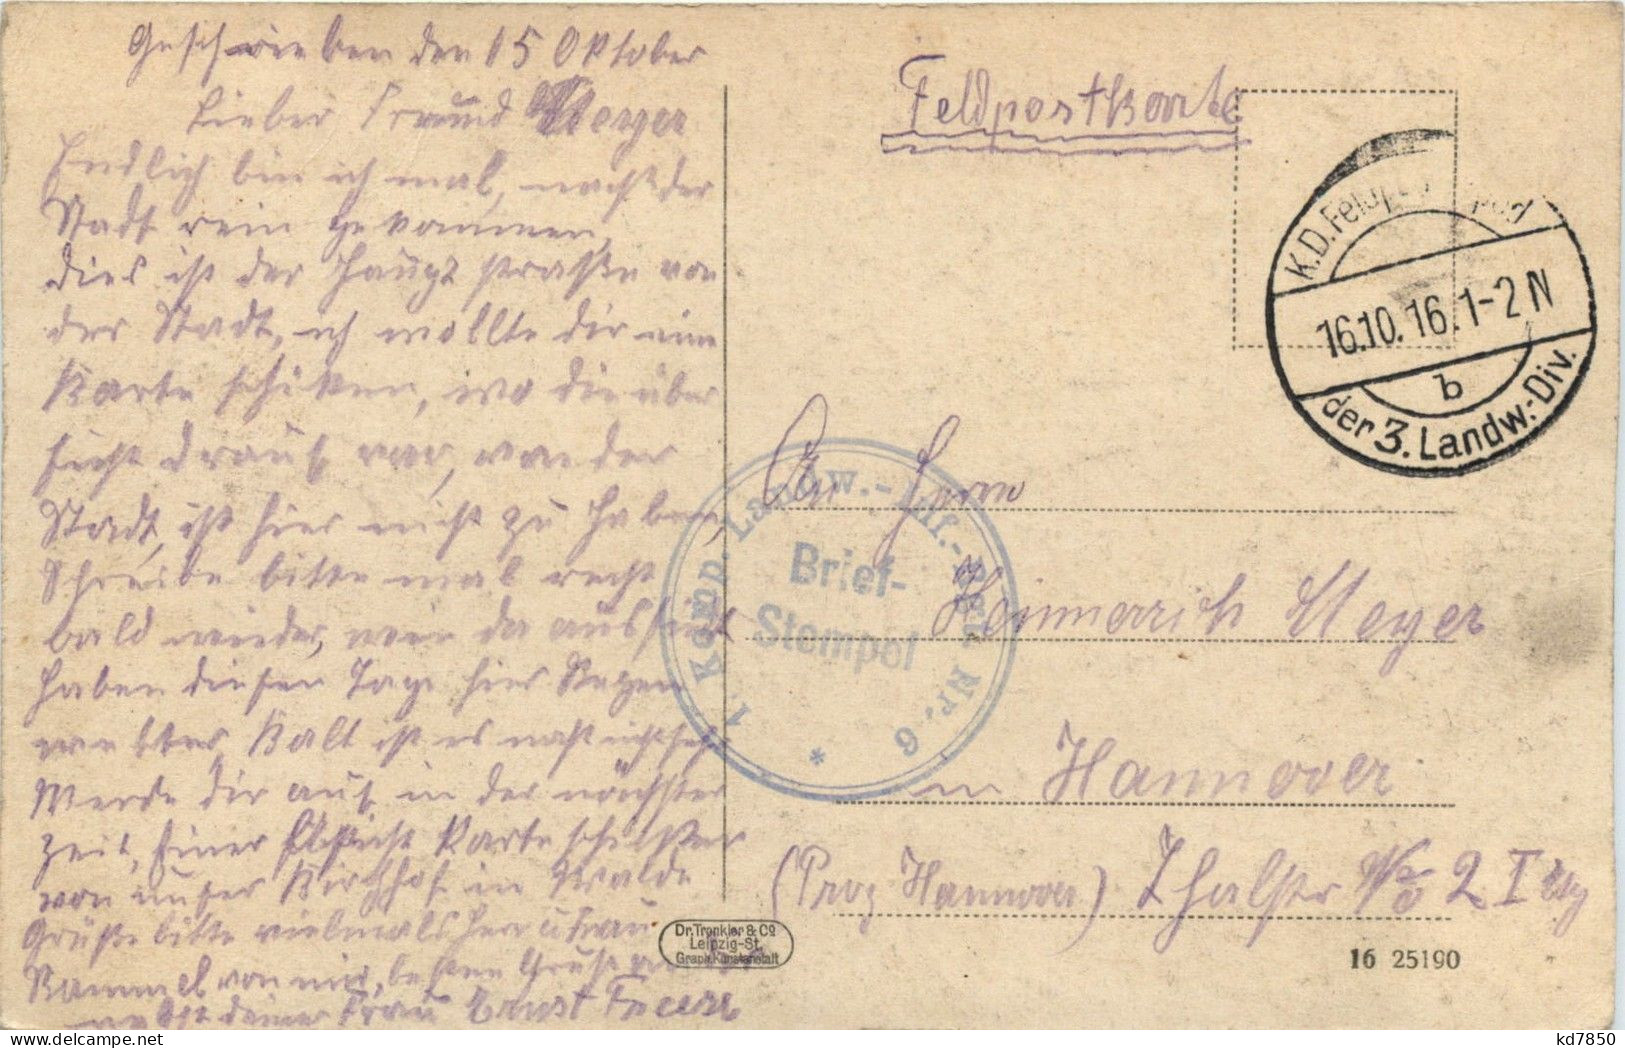 Geschrieben den 15 Oktober
Lieber Freund Meyer
Endlich bin ich mal, nach der
Stadt rein gekommen,
dies ist der Haupt straße von
der Stadt, ich wollte dir eine
Karte schiken, wo die über
sicht drauf war, von der
Stadt, ist hier nicht zu haben,
Schreibe bitte mal recht
bald wieder, wie da aussieht
haben diesen Tage hier Regen
wetter, Kalt ist es noch nicht sehr
Werde dir auch in der nächster
zeit, einer Ansicht Karte schicken
von unser Kirchhof im Walde
Grüße bitte vielmals Herr u Frau
Rammel von mir, besten Gruß
nebst deiner Frau Ernst
Feldpostkarte
K.D. Feldp
16.10.16.1-2 N
b
der 3. Landw.-Div.
1. Komp. Landw.-Inf.-Regt. Nr. 6
Brief-
Stempel
*
An Herrn
Heinnerich Meyer
in Hannover
(Prov Hannover) Thalstr No 2 I Etg
Dr. Trenkler & Co
Leipzig-St.
Graph. Kunstanstalt
16 25190
kd7850